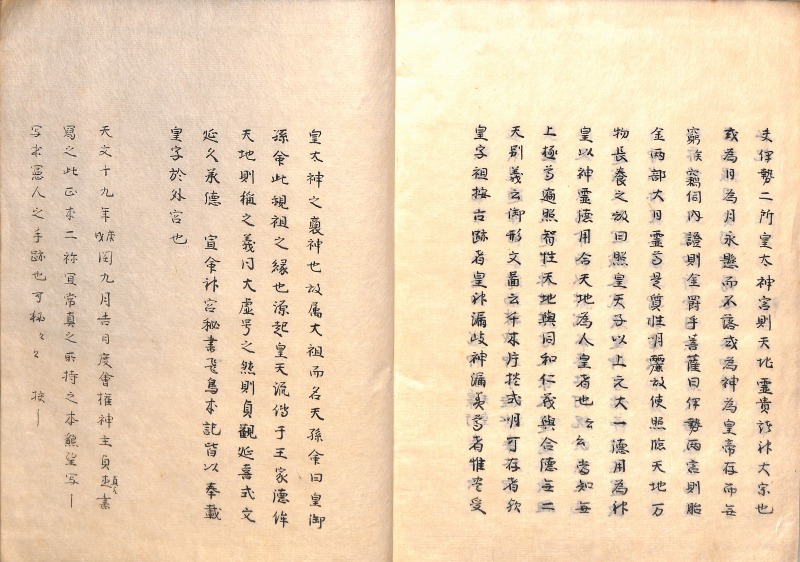 夫伊勢二所皇太神宮則天地霊貴諸神大宗也
或為日為月永懸而不落或為神為皇帝存而無
窮 竊伺内證則金 手菩薩曰伊勢両宮則胎
金両部大日霊 是尊性明麗故使照臨天地万
物長養之故曰照皇天子以上元大一徳用為神
皇以神霊徳用合天地為人皇者也云云当知無
上極 遍照智性天地與同和仁義與合徳無二
天別義云御形文図云 式明可存者歟
皇字祖按古跡者皇 漏岐神漏美 者惟 受
皇太神之裏神也故属大祖而名天孫命曰皇御
孫命此規祖之縁也源起皇天流備于王家徳侔
天地則稱之義同大虚号之然則貞観延喜式文
延久承徳 宣命神宮秘書飛鳥本記皆以奉載
皇字於外宮也
天文十九年庚戌閏九月吉日度會権神主貞 書
写之此正本二祢宜常真之所持之本 望写ー
写本 人之手跡也可秘々々 ー